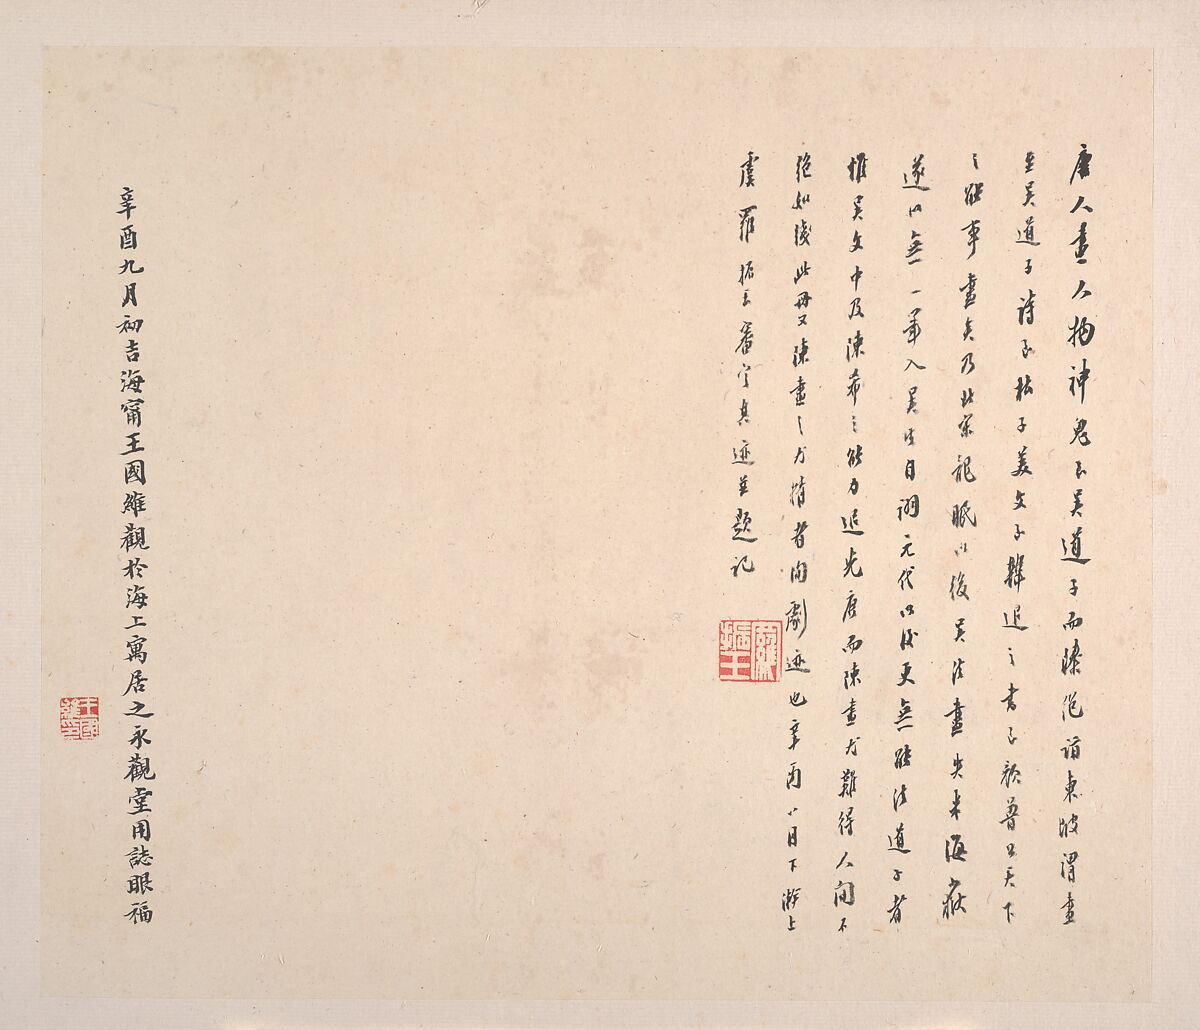 唐人畫人物神鬼至吳道子而臻絕詣東坡謂畫
至吳道子詩至杜子美文至韓退之書至顏魯公天下
之能事畢矣乃北宋龍眠以後吳法盡失米海嶽
遂以無一筆入吳生自詡元代以後更無能法道子者
惟吳文中及陳章之能力追先唐而陳畫尤難得人間不
絕如綫此冊又陳畫之尤精者洵劇迹也辛酉八月下澣上
虞羅振玉審定真迹並題記
羅振玉
辛酉九月初吉海甯王國維觀於海上寓居之永觀堂用誌眼福
王國維